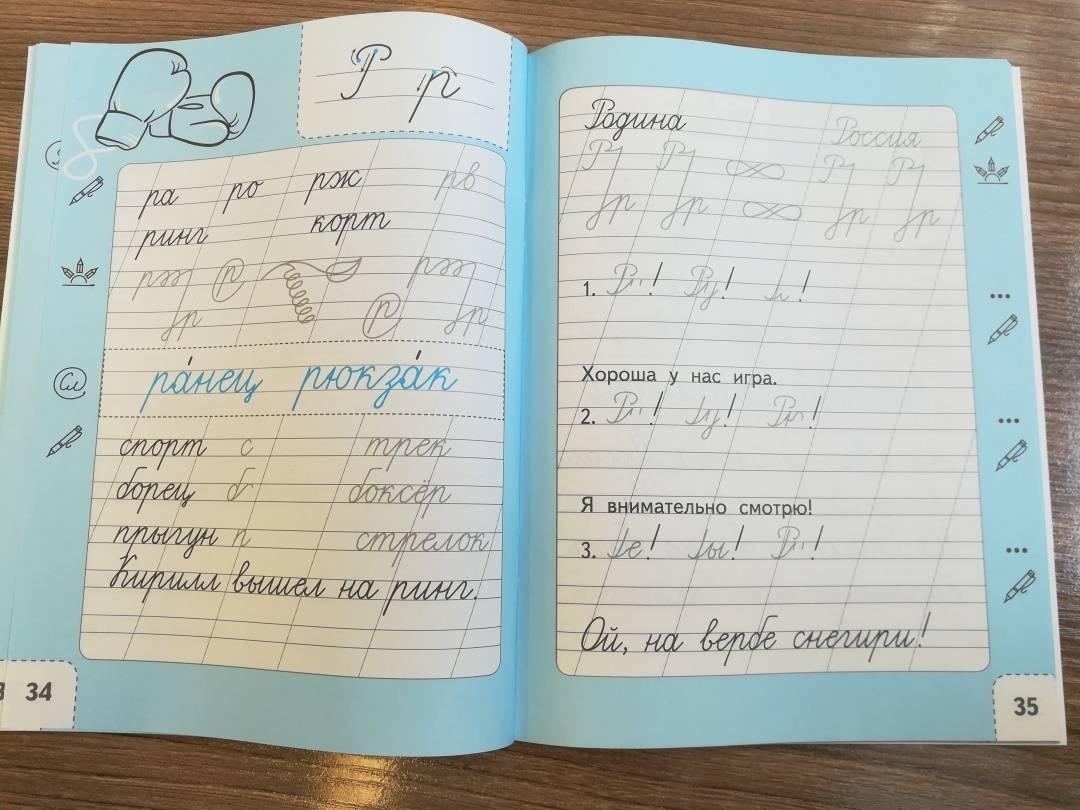 Р р
ра ро рж рв
ринг корт
р
р
ра́нец рюкза́к
спорт с трек
борец б боксёр
прыгун п стрелок
Кирилл вышел на ринг.
34
Родина Россия
1. ! ! !
Хороша у нас игра.
2. ! ! !
Я внимательно смотрю!
3. е! ы! !
Ой, на вербе снегири!
35